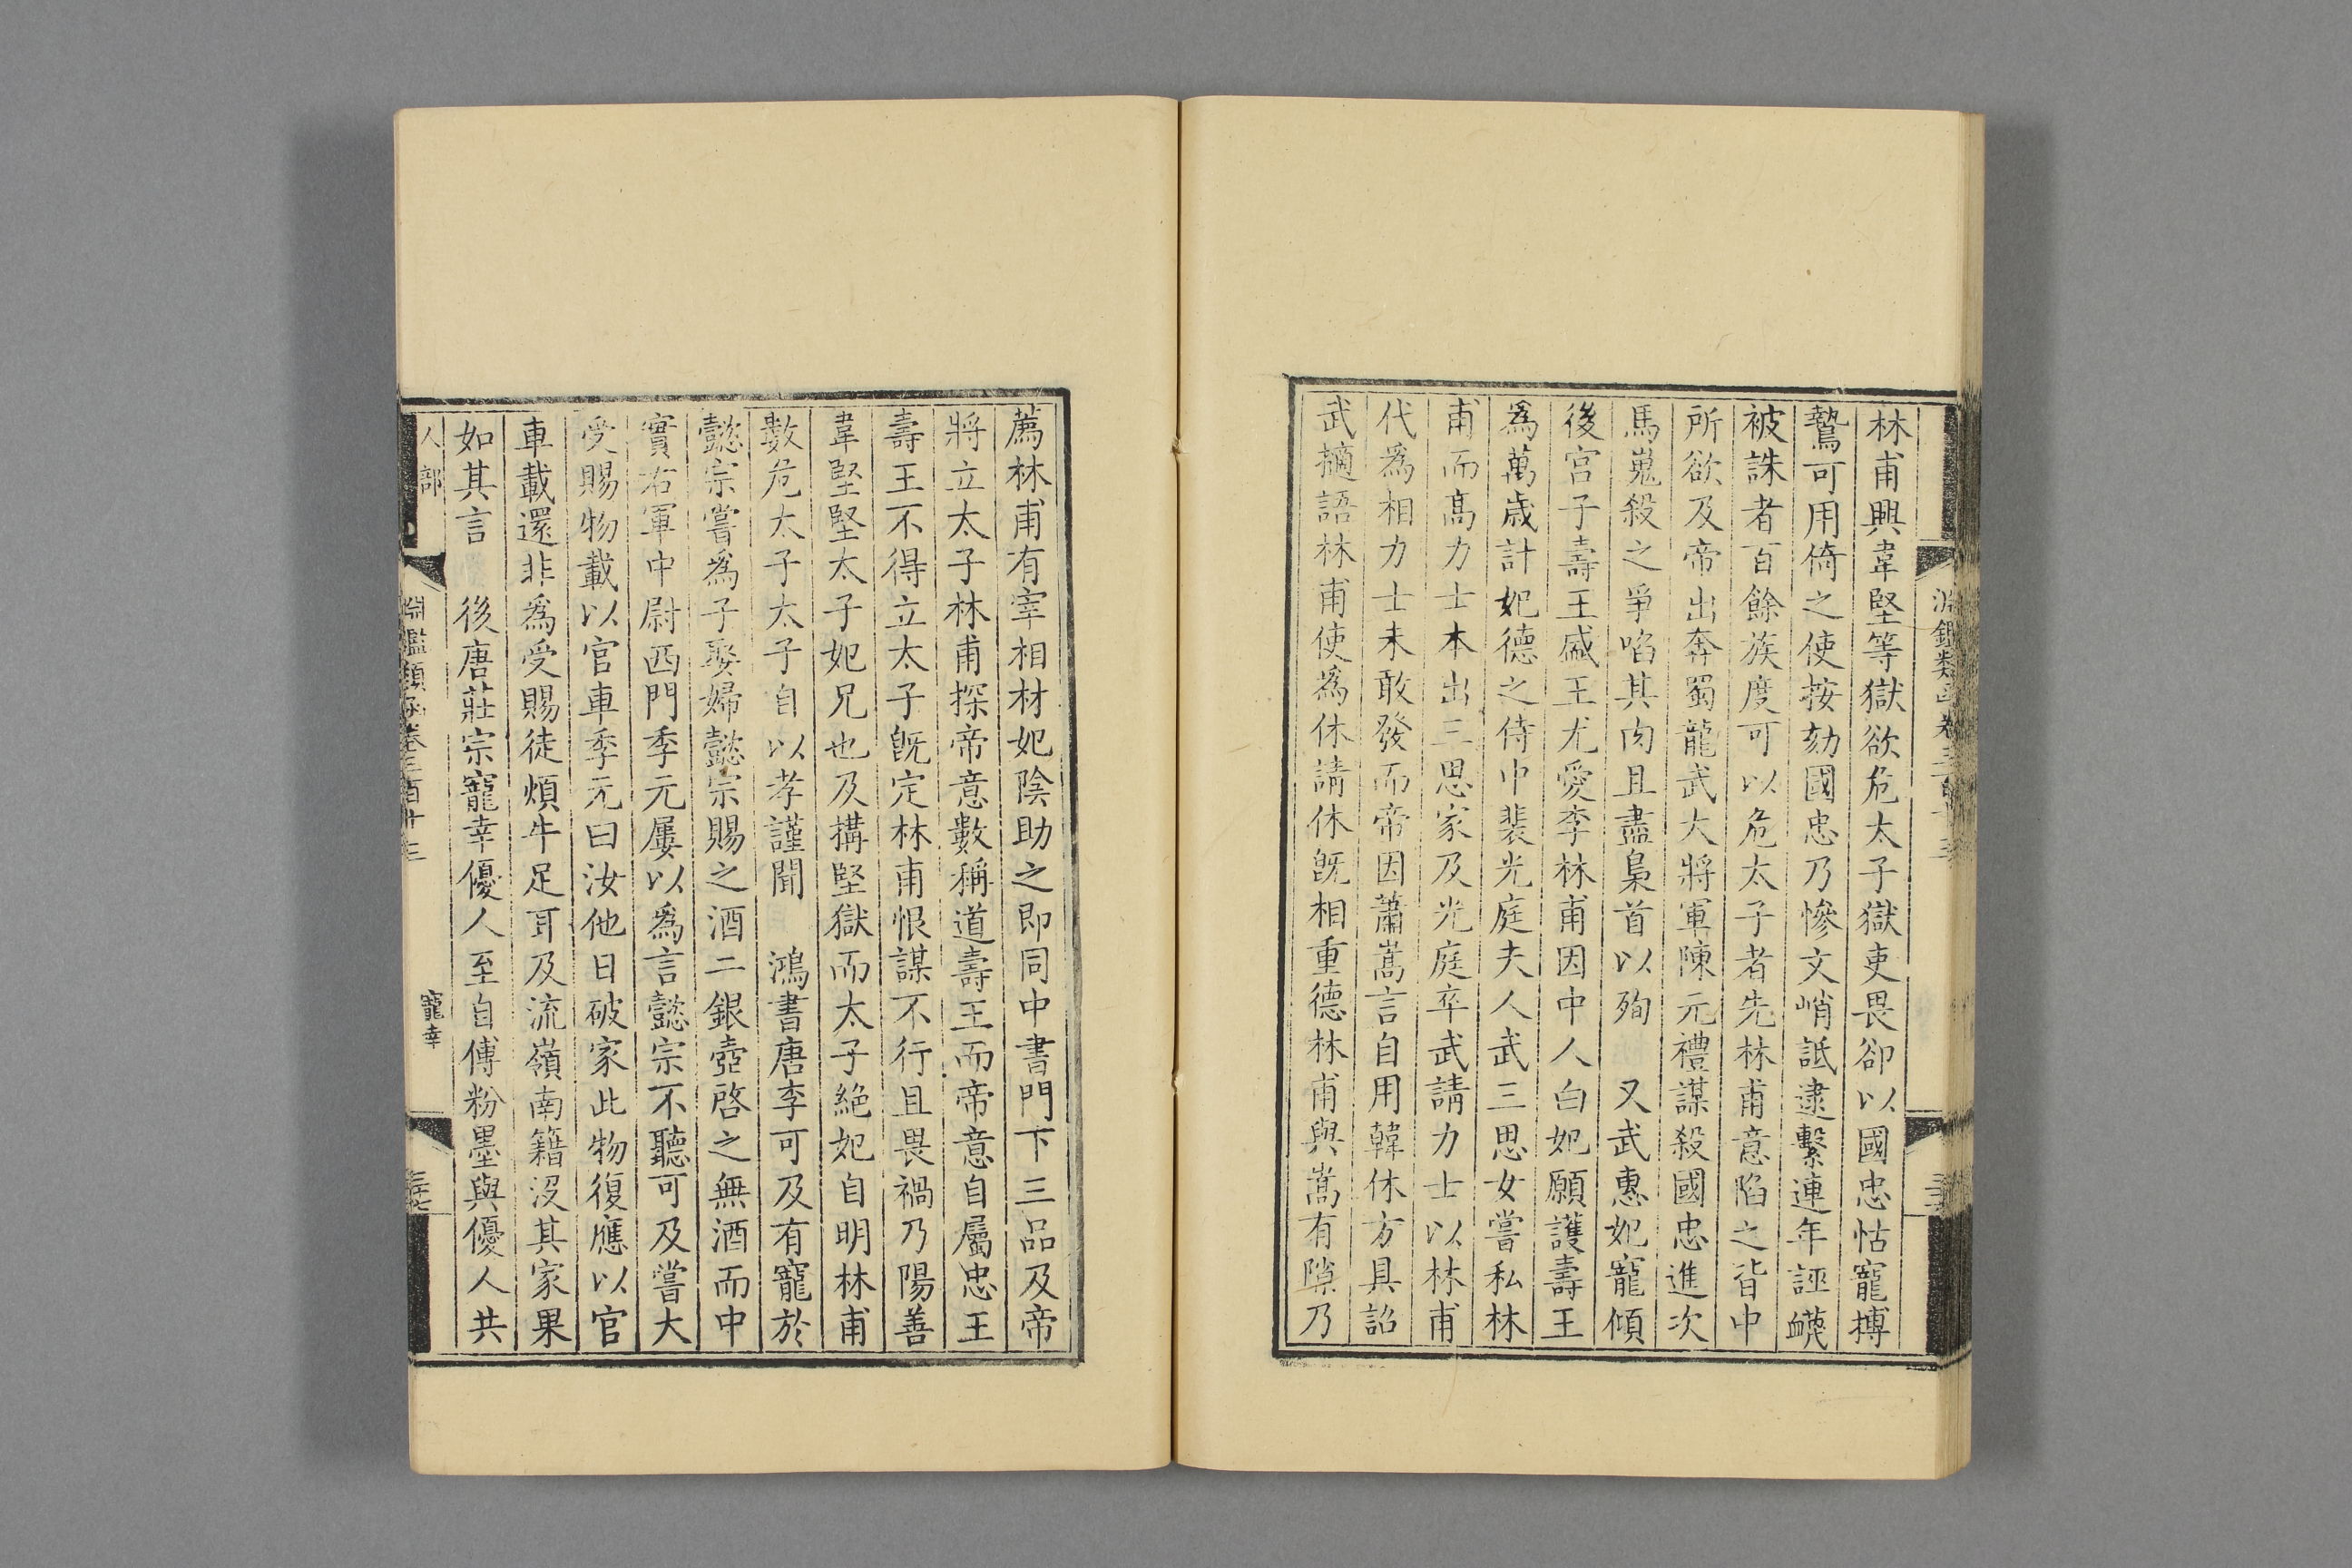 林甫興韋堅等獄欲危太子獄吏畏卻以國忠怙寵搏
鷙可用倚之使按劾國忠乃慘文峭詆逮繫連年誣衊
被誅者百餘族度可以危太子者先林甫意陷之皆中
所欲及帝出奔蜀龍武大將軍陳元禮謀殺國忠進次
馬嵬殺之爭啗其肉且盡梟首以殉　又武惠妃寵傾
後宮子壽王盛王尤愛李林甫因中人白妃願護壽王
為萬歲計妃德之侍中裴光庭夫人武三思女嘗私林
甫而高力士本出三思家及光庭卒武請力士以林甫
代為相力士未敢發而帝因蕭嵩言自用韓休方具詔
武擿語林甫使為休請休旣相重德林甫與嵩有隙乃
薦林甫有宰相材妃陰助之即同中書門下三品及帝
將立太子林甫探帝意數稱道壽王而帝意自屬忠王
壽王不得立太子旣定林甫恨謀不行且畏禍乃陽善
韋堅堅太子妃兄也及搆堅獄而太子絕妃自明林甫
數危太子太子自以孝謹聞　鴻書唐李可及有寵於
懿宗嘗為子娶婦懿宗賜之酒二銀壺啓之無酒而中
實右軍中尉西門季元屢以為言懿宗不聽可及嘗大
受賜物載以官車季元曰汝他日破家此物復應以官
車載還非為受賜徒煩牛足耳及流嶺南籍沒其家果
如其言　後唐莊宗寵幸優人至自傅粉墨與優人共
人部　淵鑑類函卷三百十三　寵幸　三十七